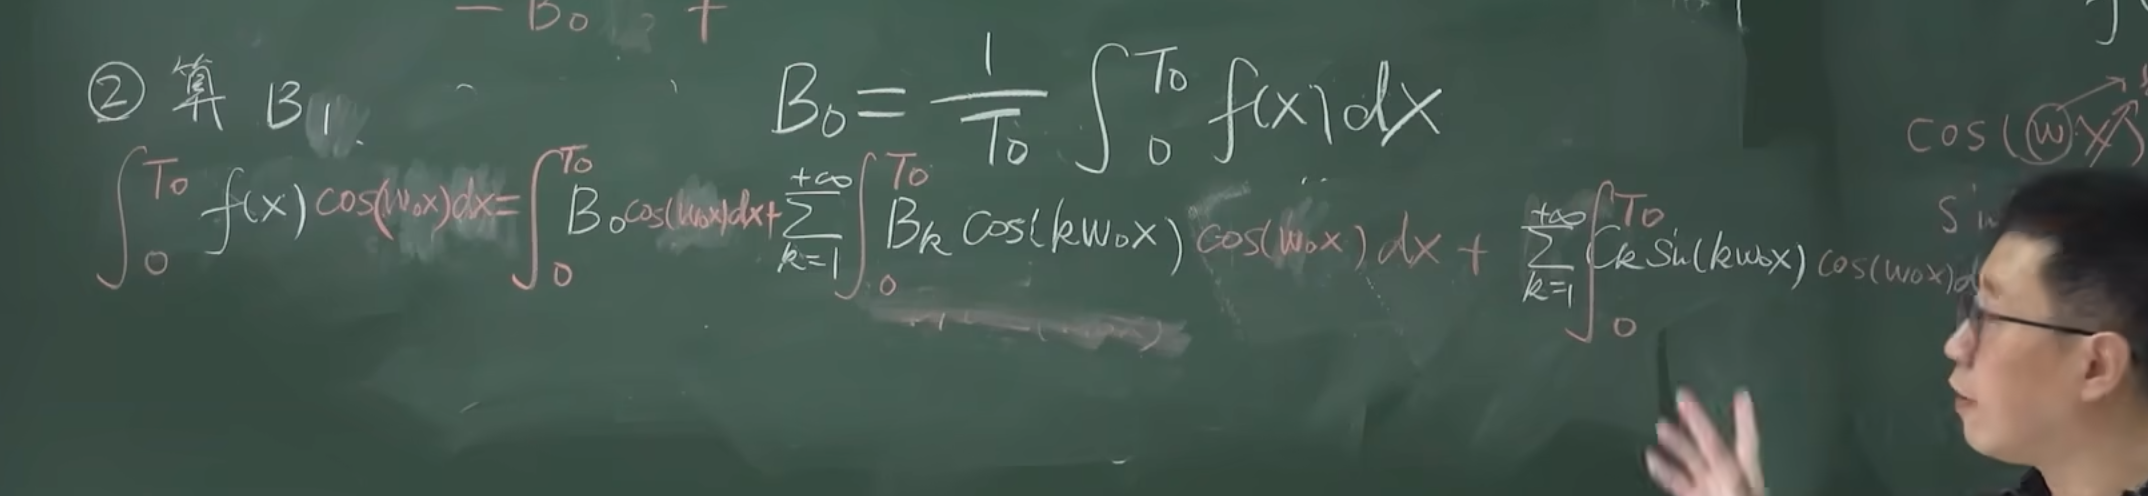 - B₀ +
② 算 B₁
B₀ = 1/T₀ ∫₀^T₀ f(x)dx
cos(wx)
∫₀^T₀ f(x)cos(w₀x)dx = ∫₀^T₀ B₀cos(w₀x)dx + ∑_{k=1}^{+∞} ∫₀^T₀ Bₖ cos(kw₀x) cos(w₀x) dx + ∑_{k=1}^{+∞} ∫₀^T₀ Cₖ sin(kw₀x) cos(w₀x)d